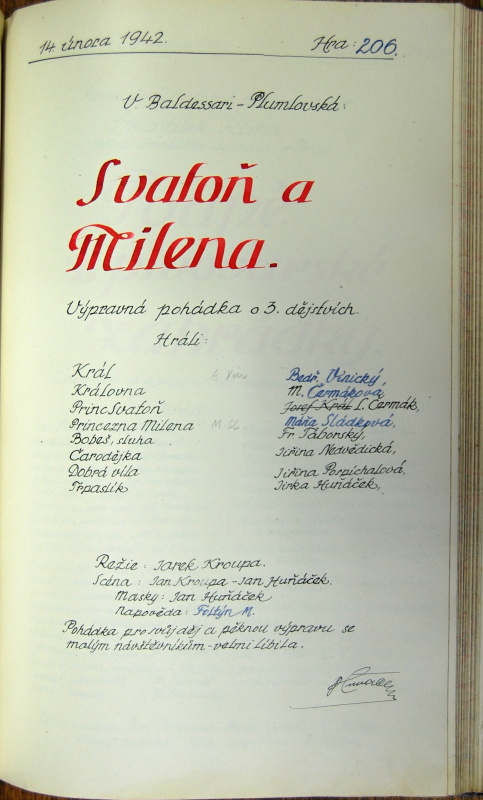 14. února 1942. Hra: 206.
V. Baldessari - Plumlovská:
Svatoň a
Milena.
Výpravná pohádka o 3. dějstvích.
Hráli:
Král Bedř. Vinický,
Královna M. Čermáková,
Princ Svatoň Josef Král L. Čermák,
Princezna Milena Máňa Sládková,
Bobeš, sluha Fr. Táborský,
Čarodějka Jiřina Nedvědická,
Dobrá víla Jiřina Pospíchalová,
Trpaslík Jirka Huňáček,
Režie: Jarek Kroupa.
Scéna: Jan Kroupa - Jan Huňáček.
Masky: Jan Huňáček
Napověda: Foltýn M.
Pohádka pro svůj děj a pěknou výpravu se
malým návštěvníkům - velmi líbila.